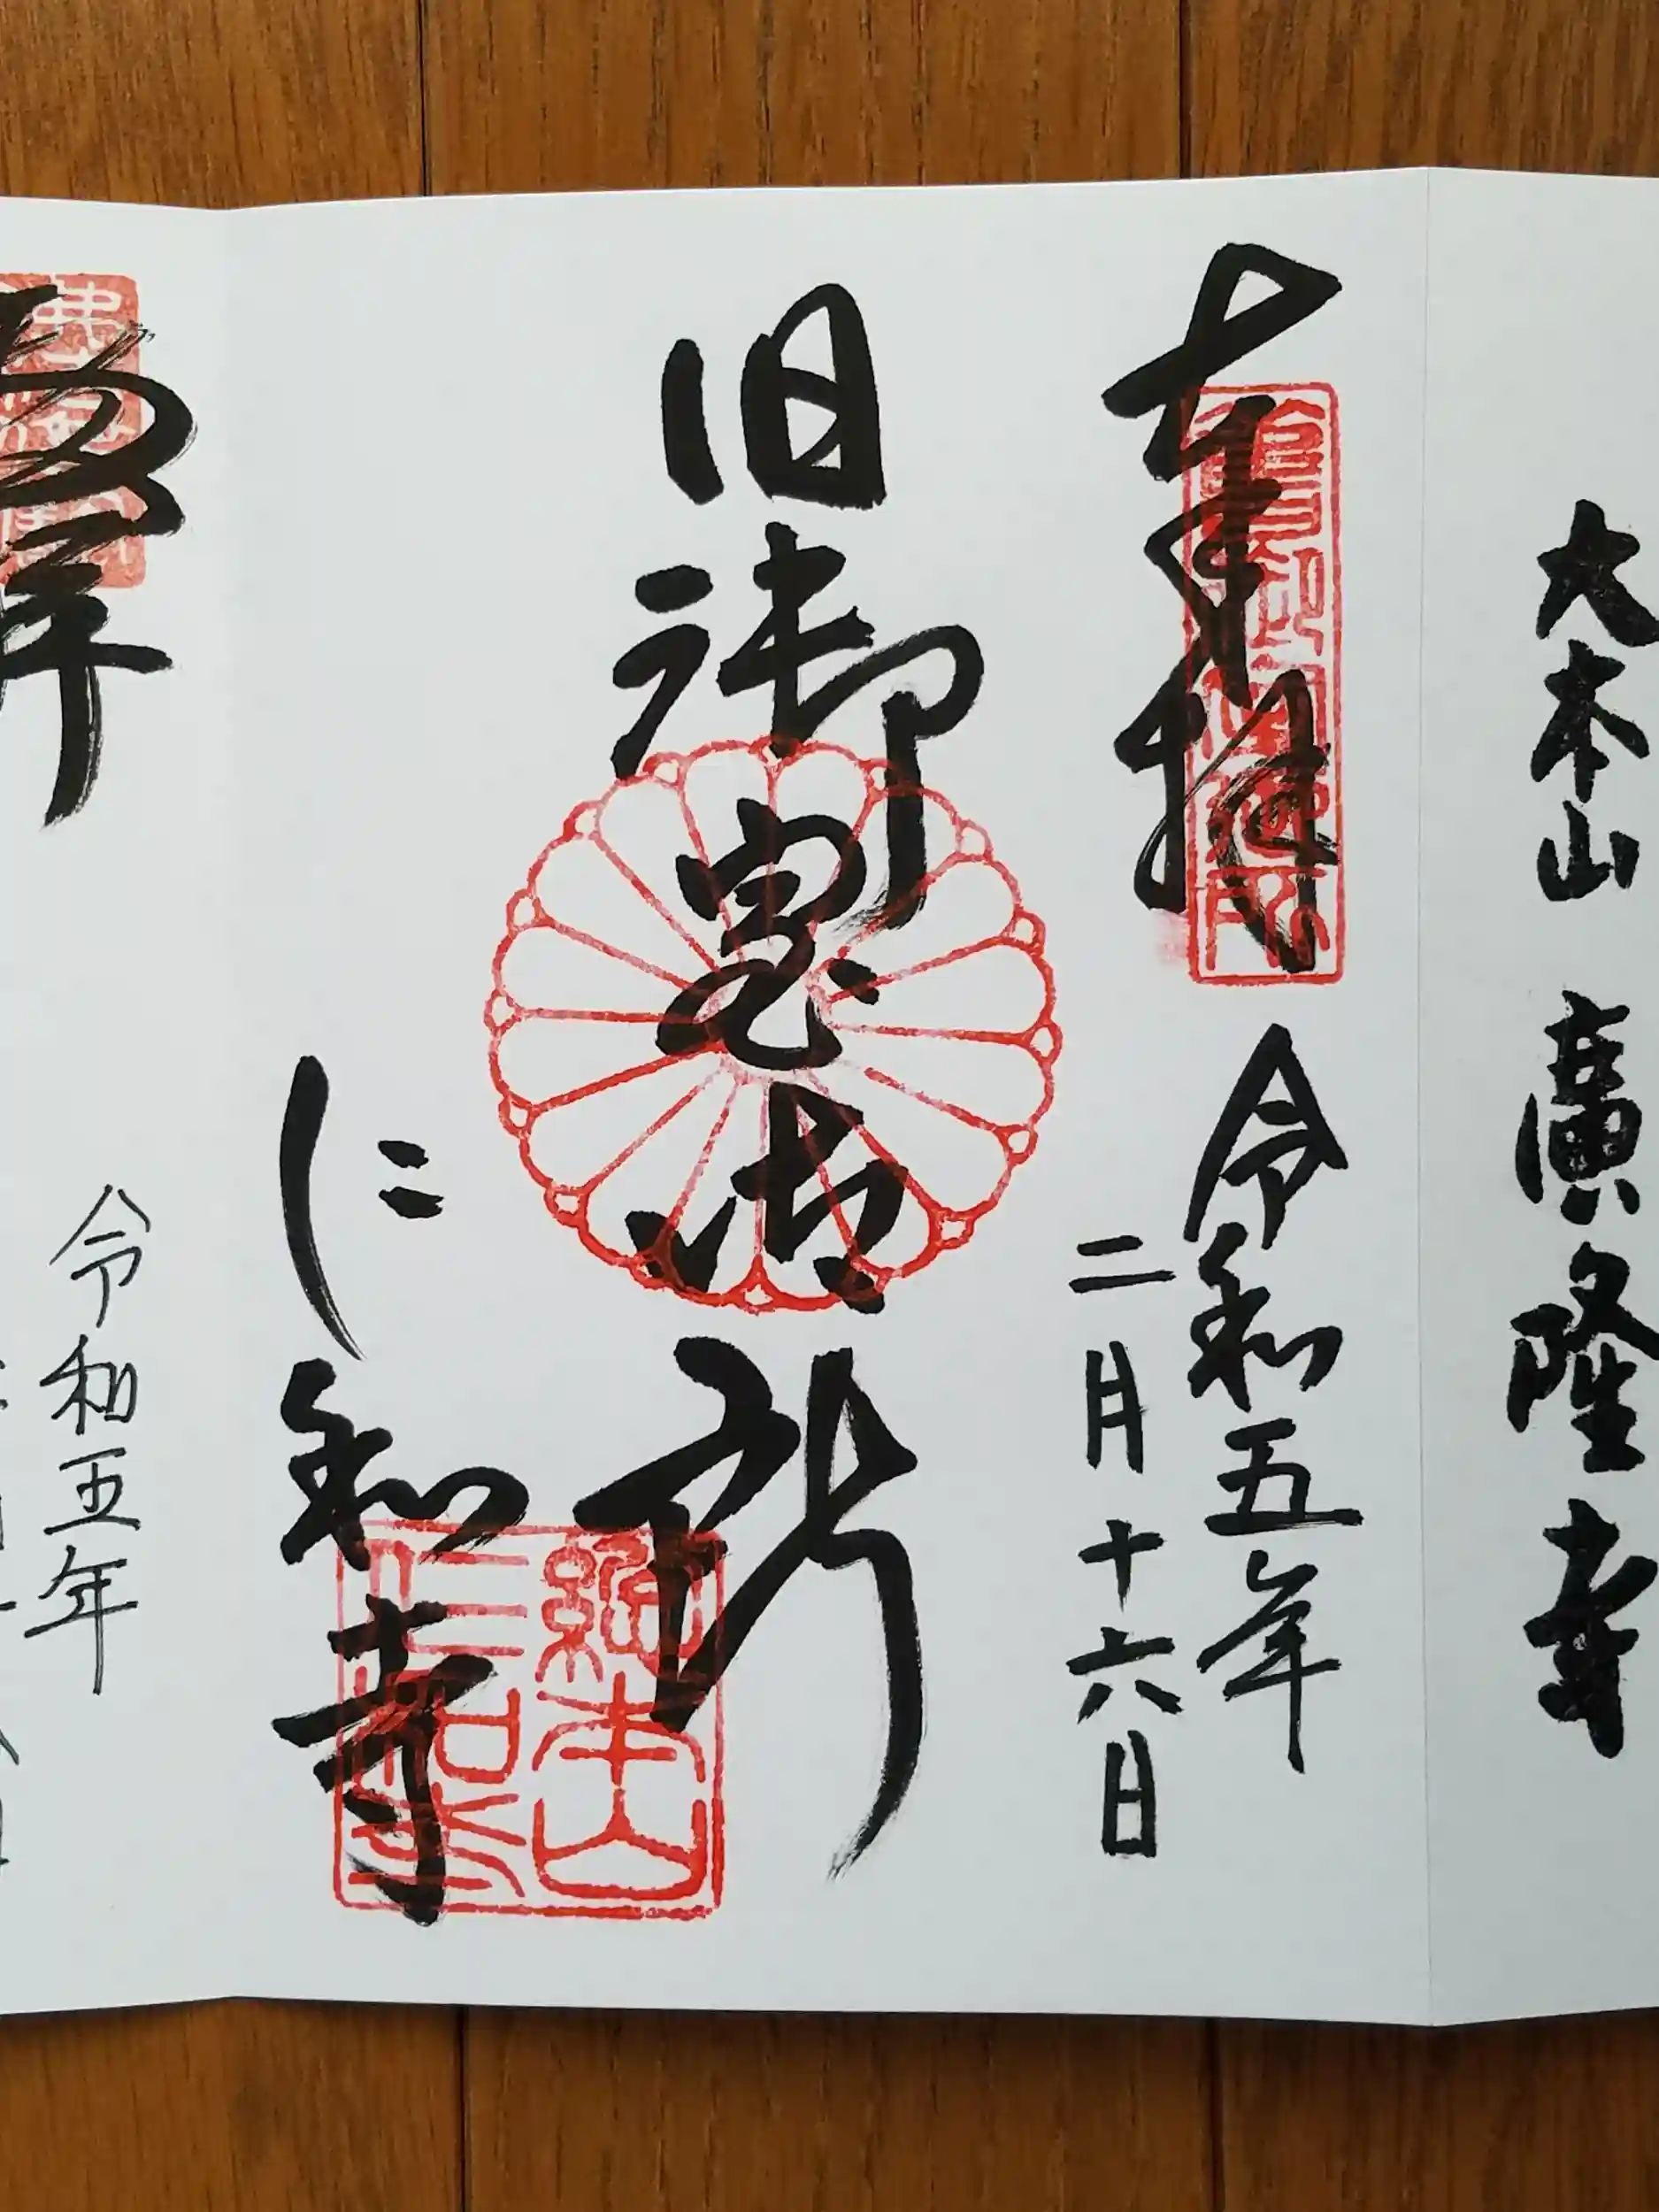 大本山 廣隆寺
奉拝
令和五年
二月十六日
旧御室御所
仁和寺
総本山
仁和寺
拝
令和五年